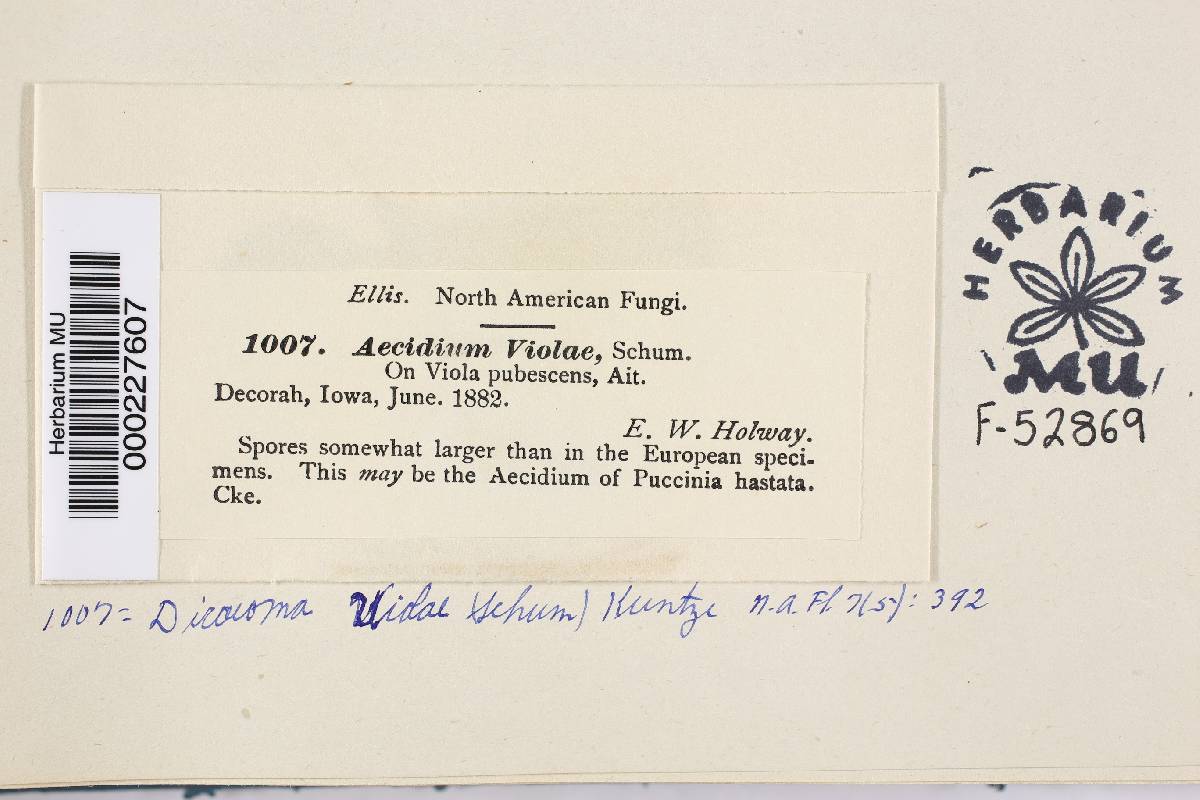 Ellis. North American Fungi.
1007. Aecidium Violae, Schum.
On Viola pubescens, Ait.
Decorah, Iowa, June. 1882.
E. W. Holway.
Spores somewhat larger than in the European speci-
mens. This may be the Aecidium of Puccinia hastata.
Cke.
Herbarium MU
000227607
HERBARIUM
MU
F-52869
1007= Dicaeoma Violae (Schum) Kuntze N.A. Fl. 7(5): 392